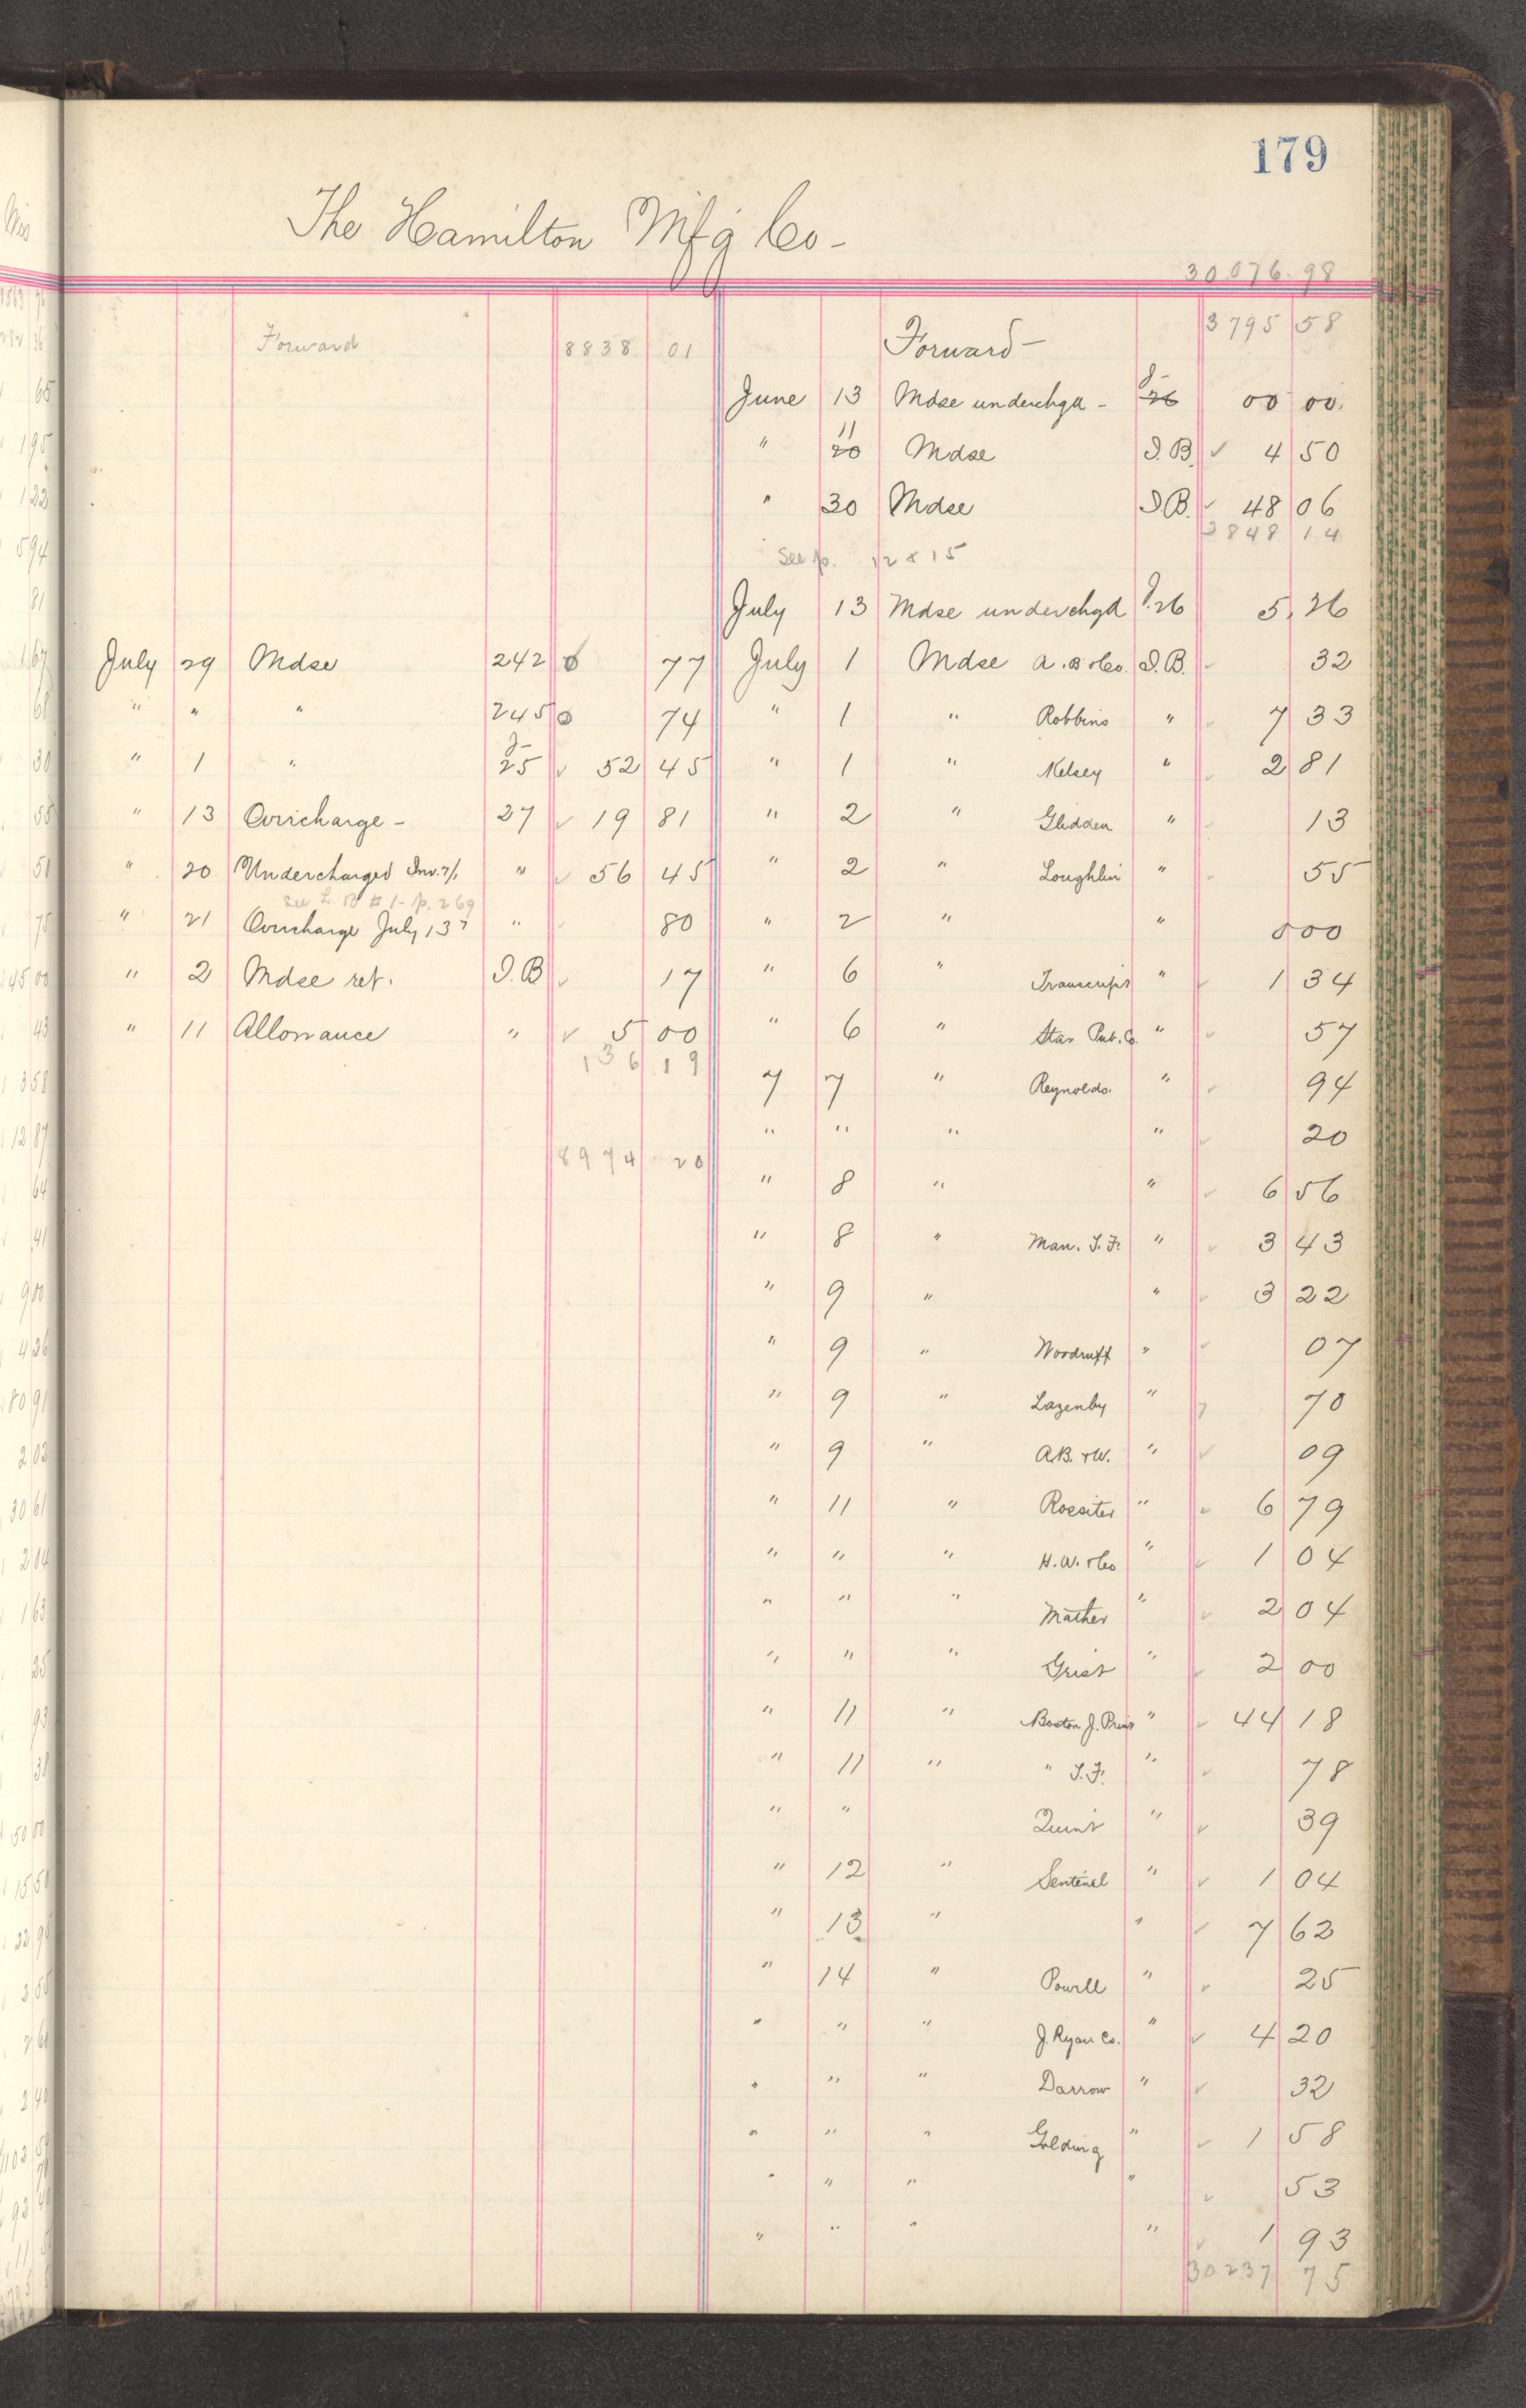 179
The Hamilton Mf'g Co-
30076.98
Forward 8838 01
Forward- 3795 58
June 13 Mdse underchgd - J- 26 00 00.
" 20 11 Mdse I.B. ✓ 4 50
" 30 Mdse I.B. ✓ 48 06
3848 14
See p. 12 & 15
July 13 Mdse underchgd J.26 5.26
July 29 Mdse 242 0 77
" " " 245 0 74
" 1 " J- 25 ✓ 52 45
" 13 Overcharge - 27 ✓ 19 81
" 20 Undercharged Inv. 7/1 " ✓ 56 45
See L B # 1- p. 269
" 21 Overcharge July 13 " ✓ 80
" 2 Mdse ret. I.B ✓ 17
" 11 Allowance " ✓ 5 00
136 19
8974 20
July 1 Mdse A.B & Co. I.B. ✓ 32
" 1 " Robbins " ✓ 7 33
" 1 " Kelsey " ✓ 2 81
" 2 " Glidden " ✓ 13
" 2 " Loughlin " ✓ 55
" 2 " " 0 00
" 6 " Transcript " ✓ 1 34
" 6 " Star Pub. Co. " ✓ 57
7 7 " Reynolds. " ✓ 94
" " " " ✓ 20
" 8 " " ✓ 6 56
" 8 " Man. T.F. " ✓ 3 43
" 9 " " ✓ 3 22
" 9 " Woodruff " ✓ 07
" 9 " Lazenby " ✓ 70
" 9 " A.B. & W. " ✓ 09
" 11 " Rossiter " ✓ 6 79
" " " H.W. & Co " ✓ 1 04
" " " Mather " ✓ 2 04
" " " Grist " ✓ 2 00
" 11 " Boston J. Print " ✓ 44 18
" 11 " " T.F. " ✓ 78
" " Quint " ✓ 39
" 12 " Sentinel " ✓ 1 04
" 13 " " ✓ 7 62
" 14 " Powell " ✓ 25
" " " J. Ryan Co. " ✓ 4 20
" " " Darrow " ✓ 32
" " " Golding " ✓ 1 58
" " " " ✓ 53
" " " " ✓ 1 93
30237 75